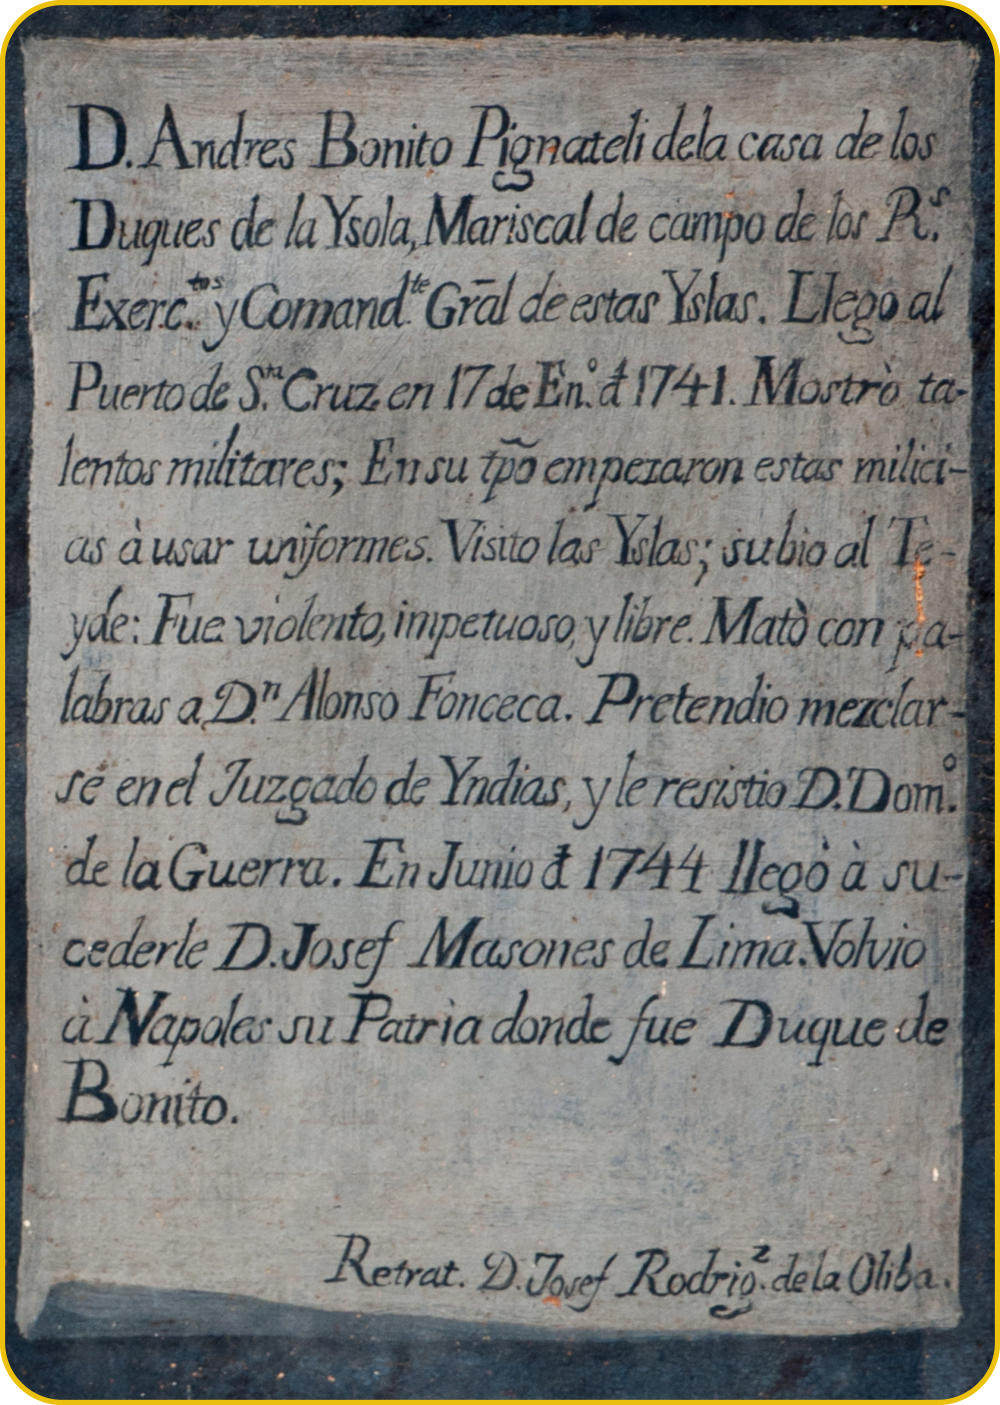 D. Andres Bonito Pignateli dela casa de los
Duques de la Ysola, Mariscal de campo de los R.s
Exerc.tos y Comand.te Gr̄al de estas Yslas. Llego al
Puerto de S.ta Cruz en 17 de En.o đ 1741. Mostrò ta-
lentos militares; En su tp̃o empezaron estas milici-
as à usar uniformes. Visito las Yslas; subio al Te-
yde: Fue violento, impetuoso, y libre. Matò con pa-
labras a D.n Alonso Fonceca. Pretendio mezclar-
se en el Juzgado de Yndias, y le resistio D. Dom.o
de la Guerra. En Junio đ 1744 llegò à su-
cederle D. Josef Masones de Lima. Volvio
à Napoles su Patria donde fue Duque de
Bonito.
Retrat. D. Josef Rodrig.z de la Oliba.